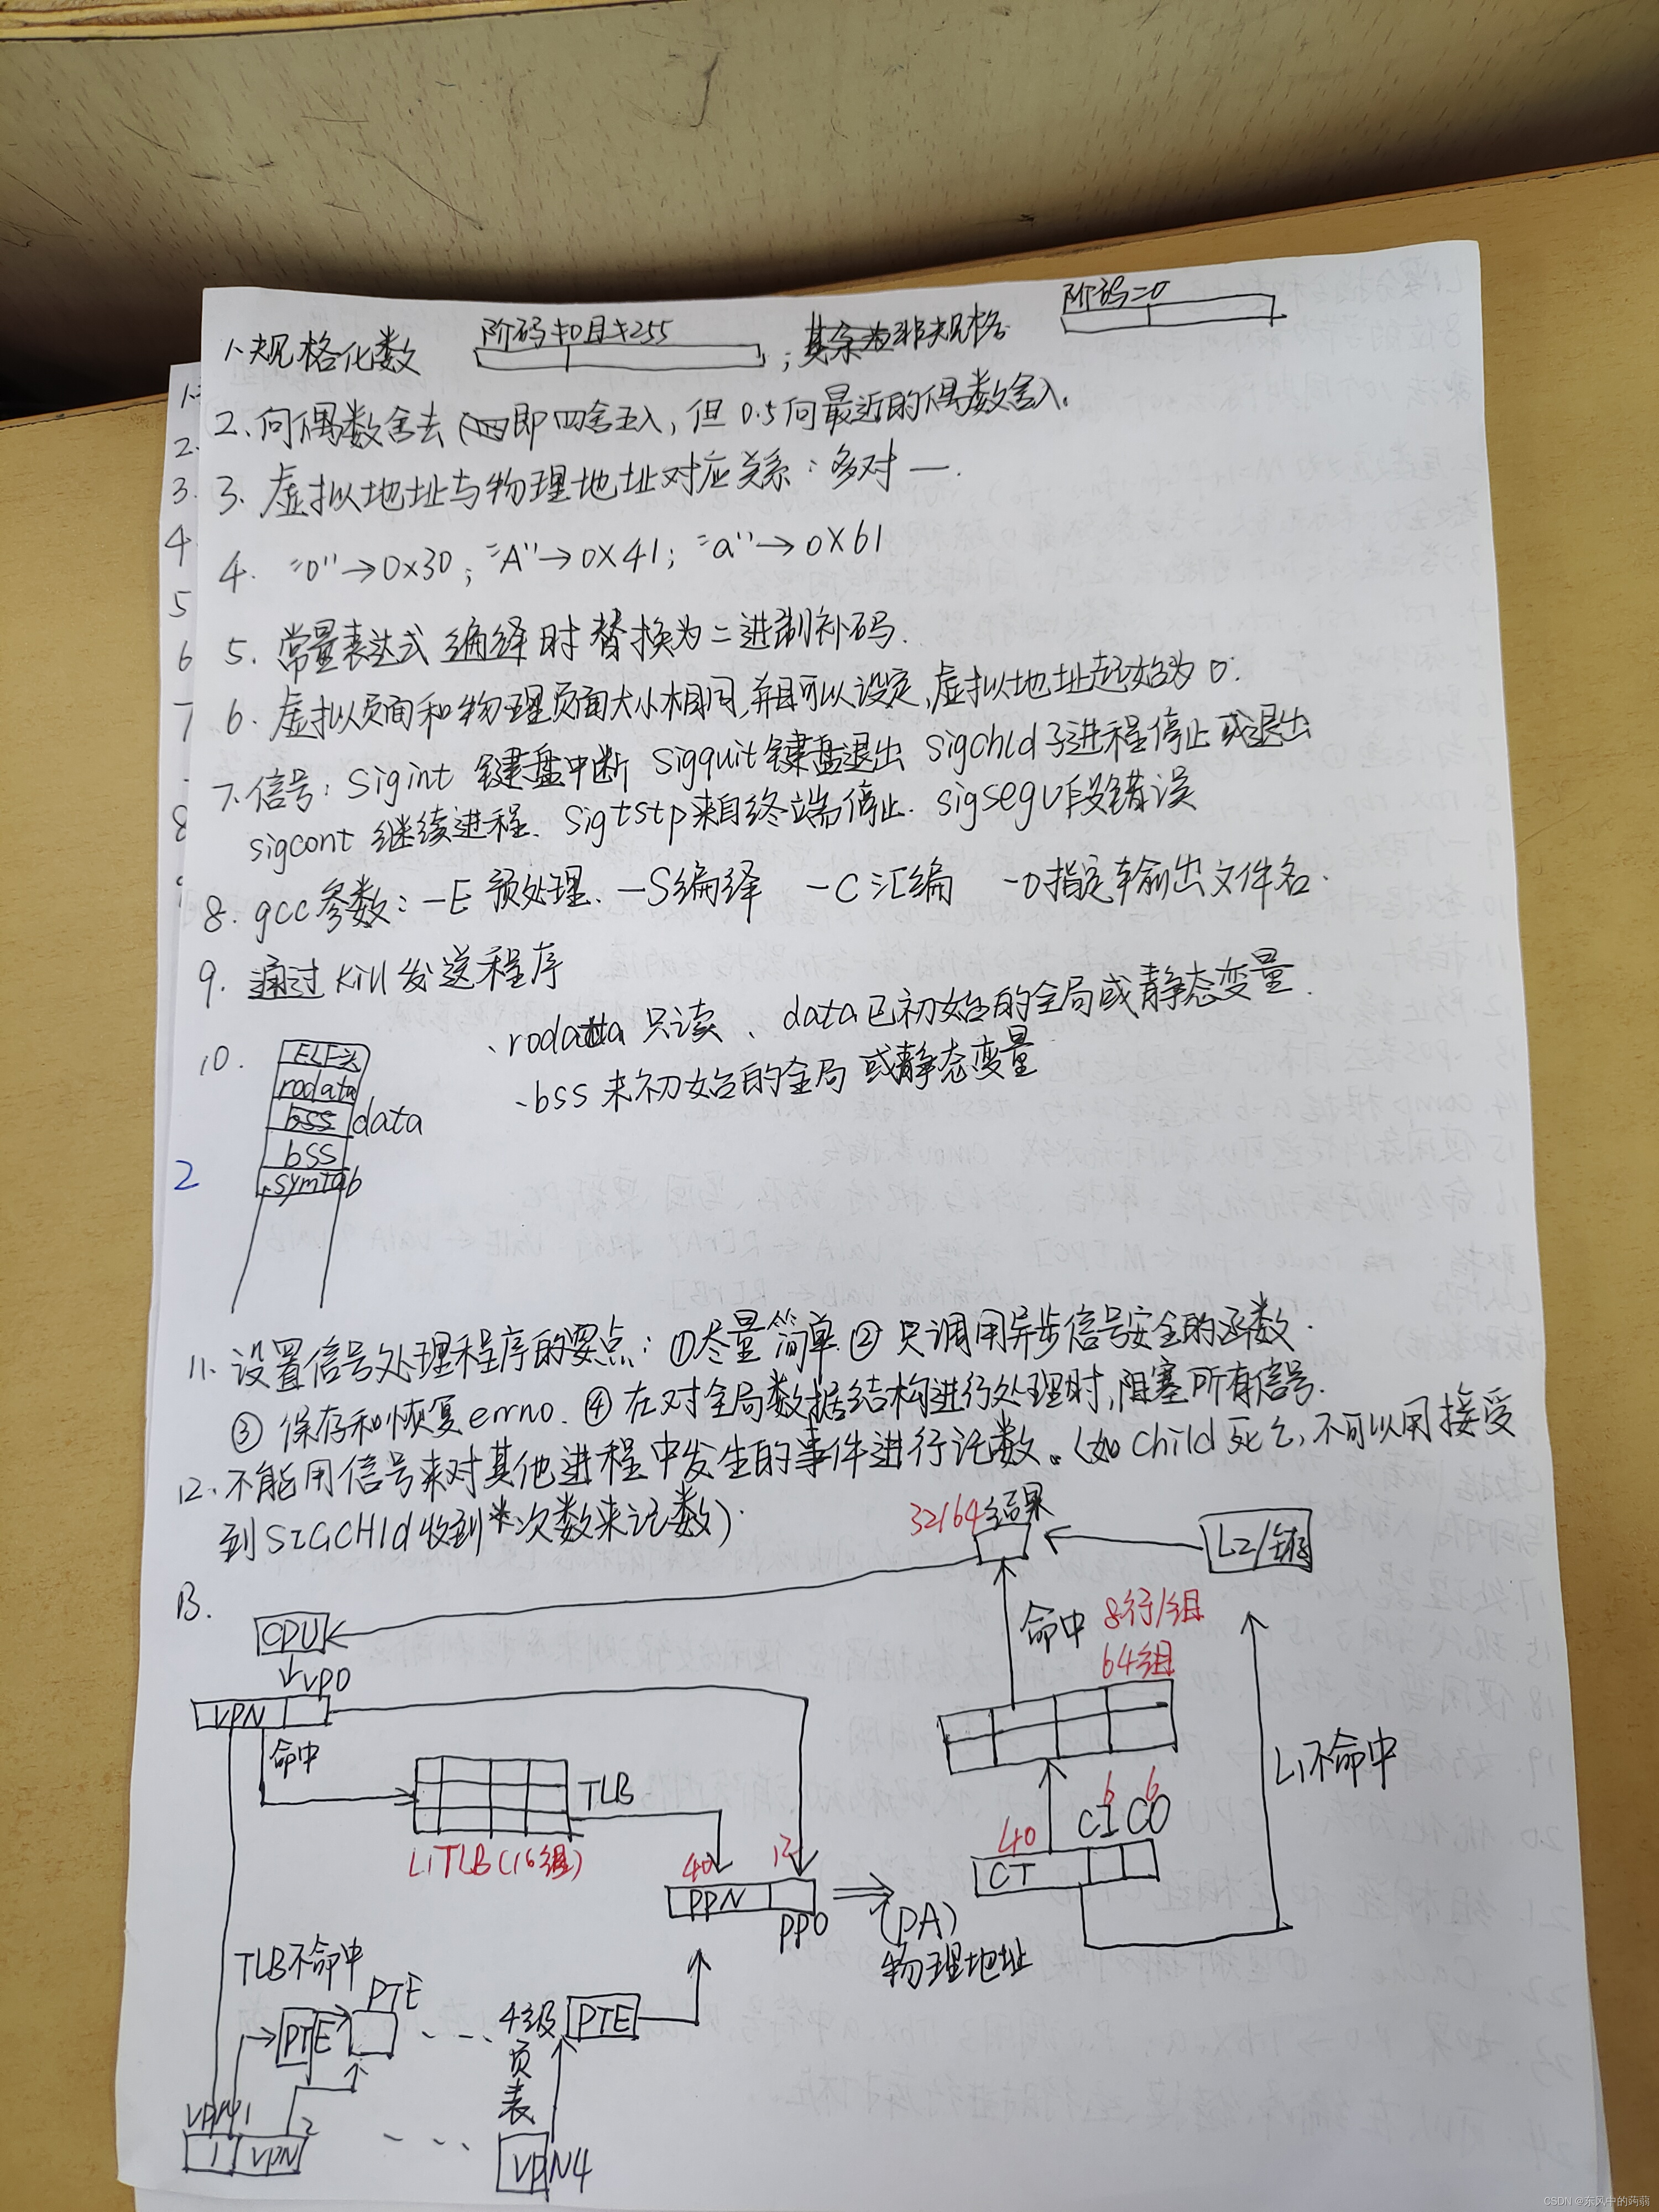 1、规格化数 阶码≠0且≠255 ; 非规格 阶码=0
2、向偶数舍去(即四舍五入, 但0.5向最近的偶数舍入.
3、虚拟地址与物理地址对应关系:多对一.
4. "0"→0x30; "A"→0X41; "a"→0X61
5. 常量表达式编绎时替换为二进制补码.
6. 虚拟页面和物理页面大小相同,并且可以设定,虚拟地址起始为0.
7、信号: Sigint 键盘中断 Sigquit 键盘退出 Sigchld 子进程停止或退出
sigcont 继续进程、Sigtstp来自终端停止. sigsegv段错误
8. gcc参数: -E 预处理、-S编绎 -C 汇编 -o指定输出文件名.
9. 通过kill发送程序
、rodata 只读 、data已初始的全局或静态变量.
10. ELF头
、bss 未初始的全局或静态变量
rodata
bss data
bss
.symtab
2
11、设置信号处理程序的要点: ①尽量简单.② 只调用异步信号安全的函数.
③ 保存和恢复errno. ④ 在对全局数据结构进行处理时,阻塞所有信号.
12、不能用信号来对其他进程中发生的事件进行记数。(如child死亡,不可以用接受
到SIGCHld收到*次数来记数)
32/64 结果
L2/主存
13.
CPU
命中 8行/组
64组
VPO
VPN
命中
TLB
L1不命中
L1TLB(16组)
6 6
40 CI CO
CT
40 12
PPN
PPO
(PA)
物理地址
TLB不命中
PTE
PTE
4级 PTE
页
表
VPN1 2
1 VPN
VPN4
CSDN @东风中的蒟蒻